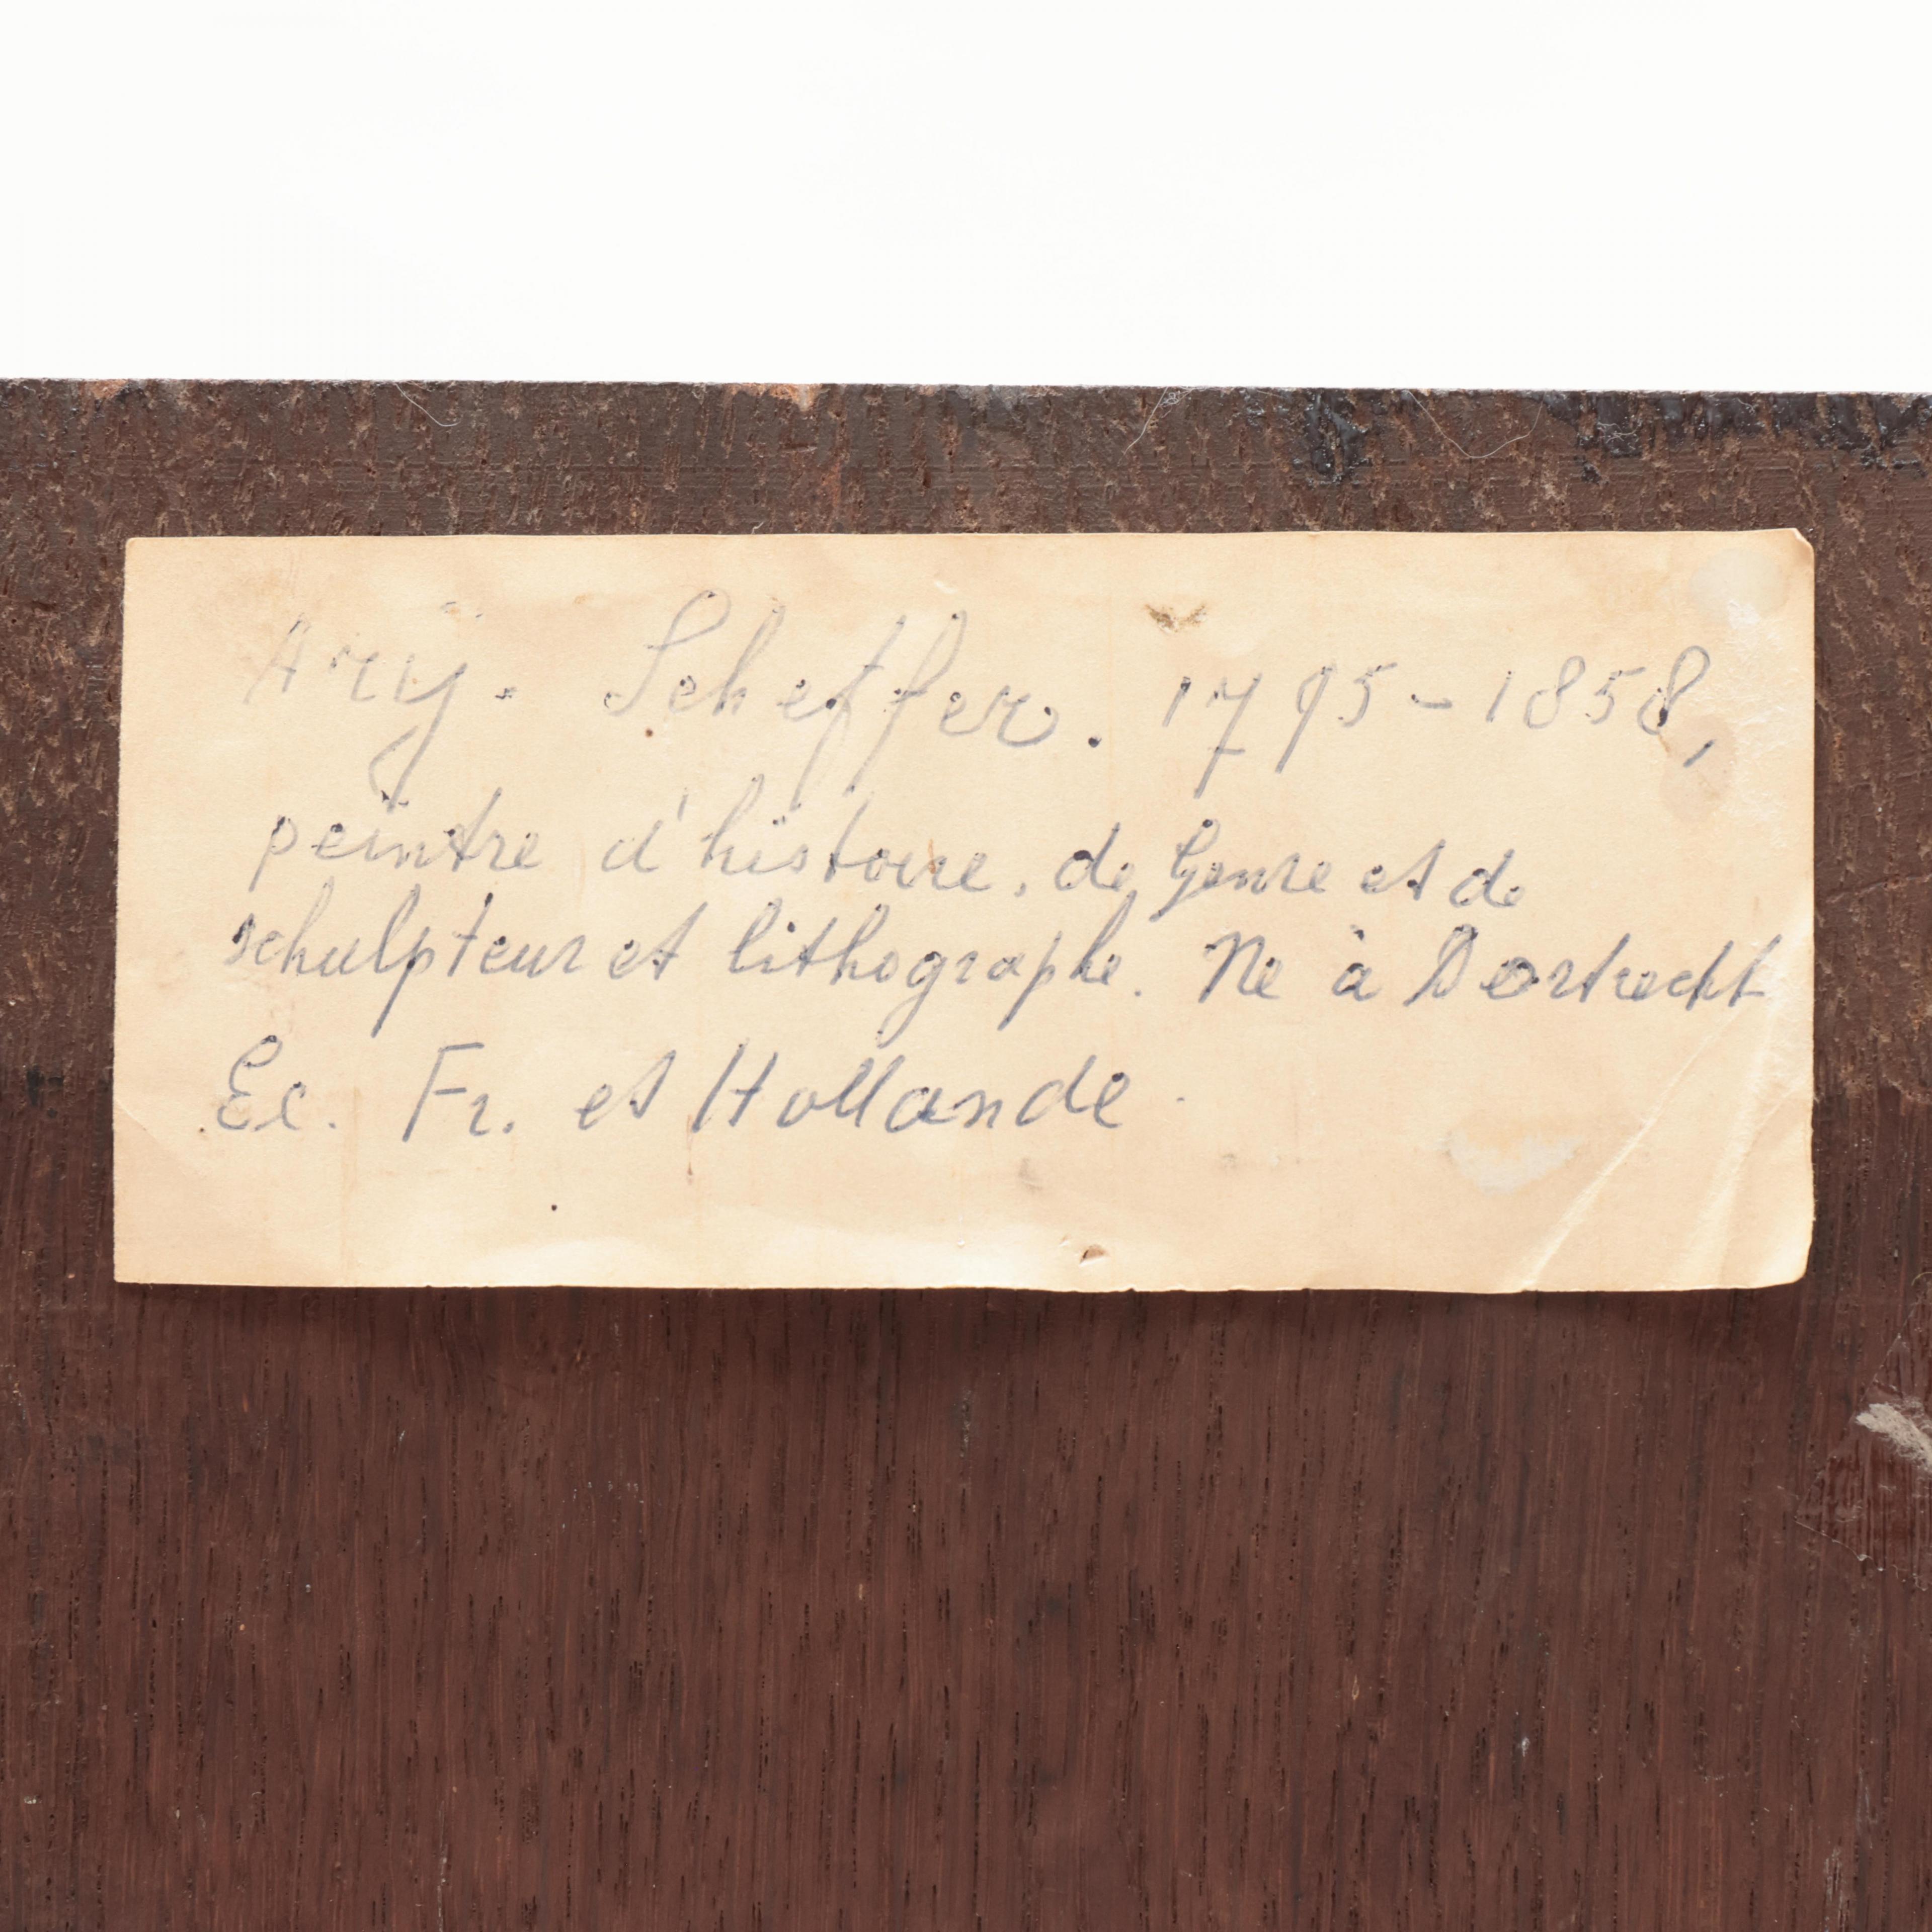 Arÿ. Scheffer. 1795-1858,
peintre d'histoire, de Genre et de
schulpteur et lithographe. Ne à Dortrecht
Ec. Fr. et Hollande.